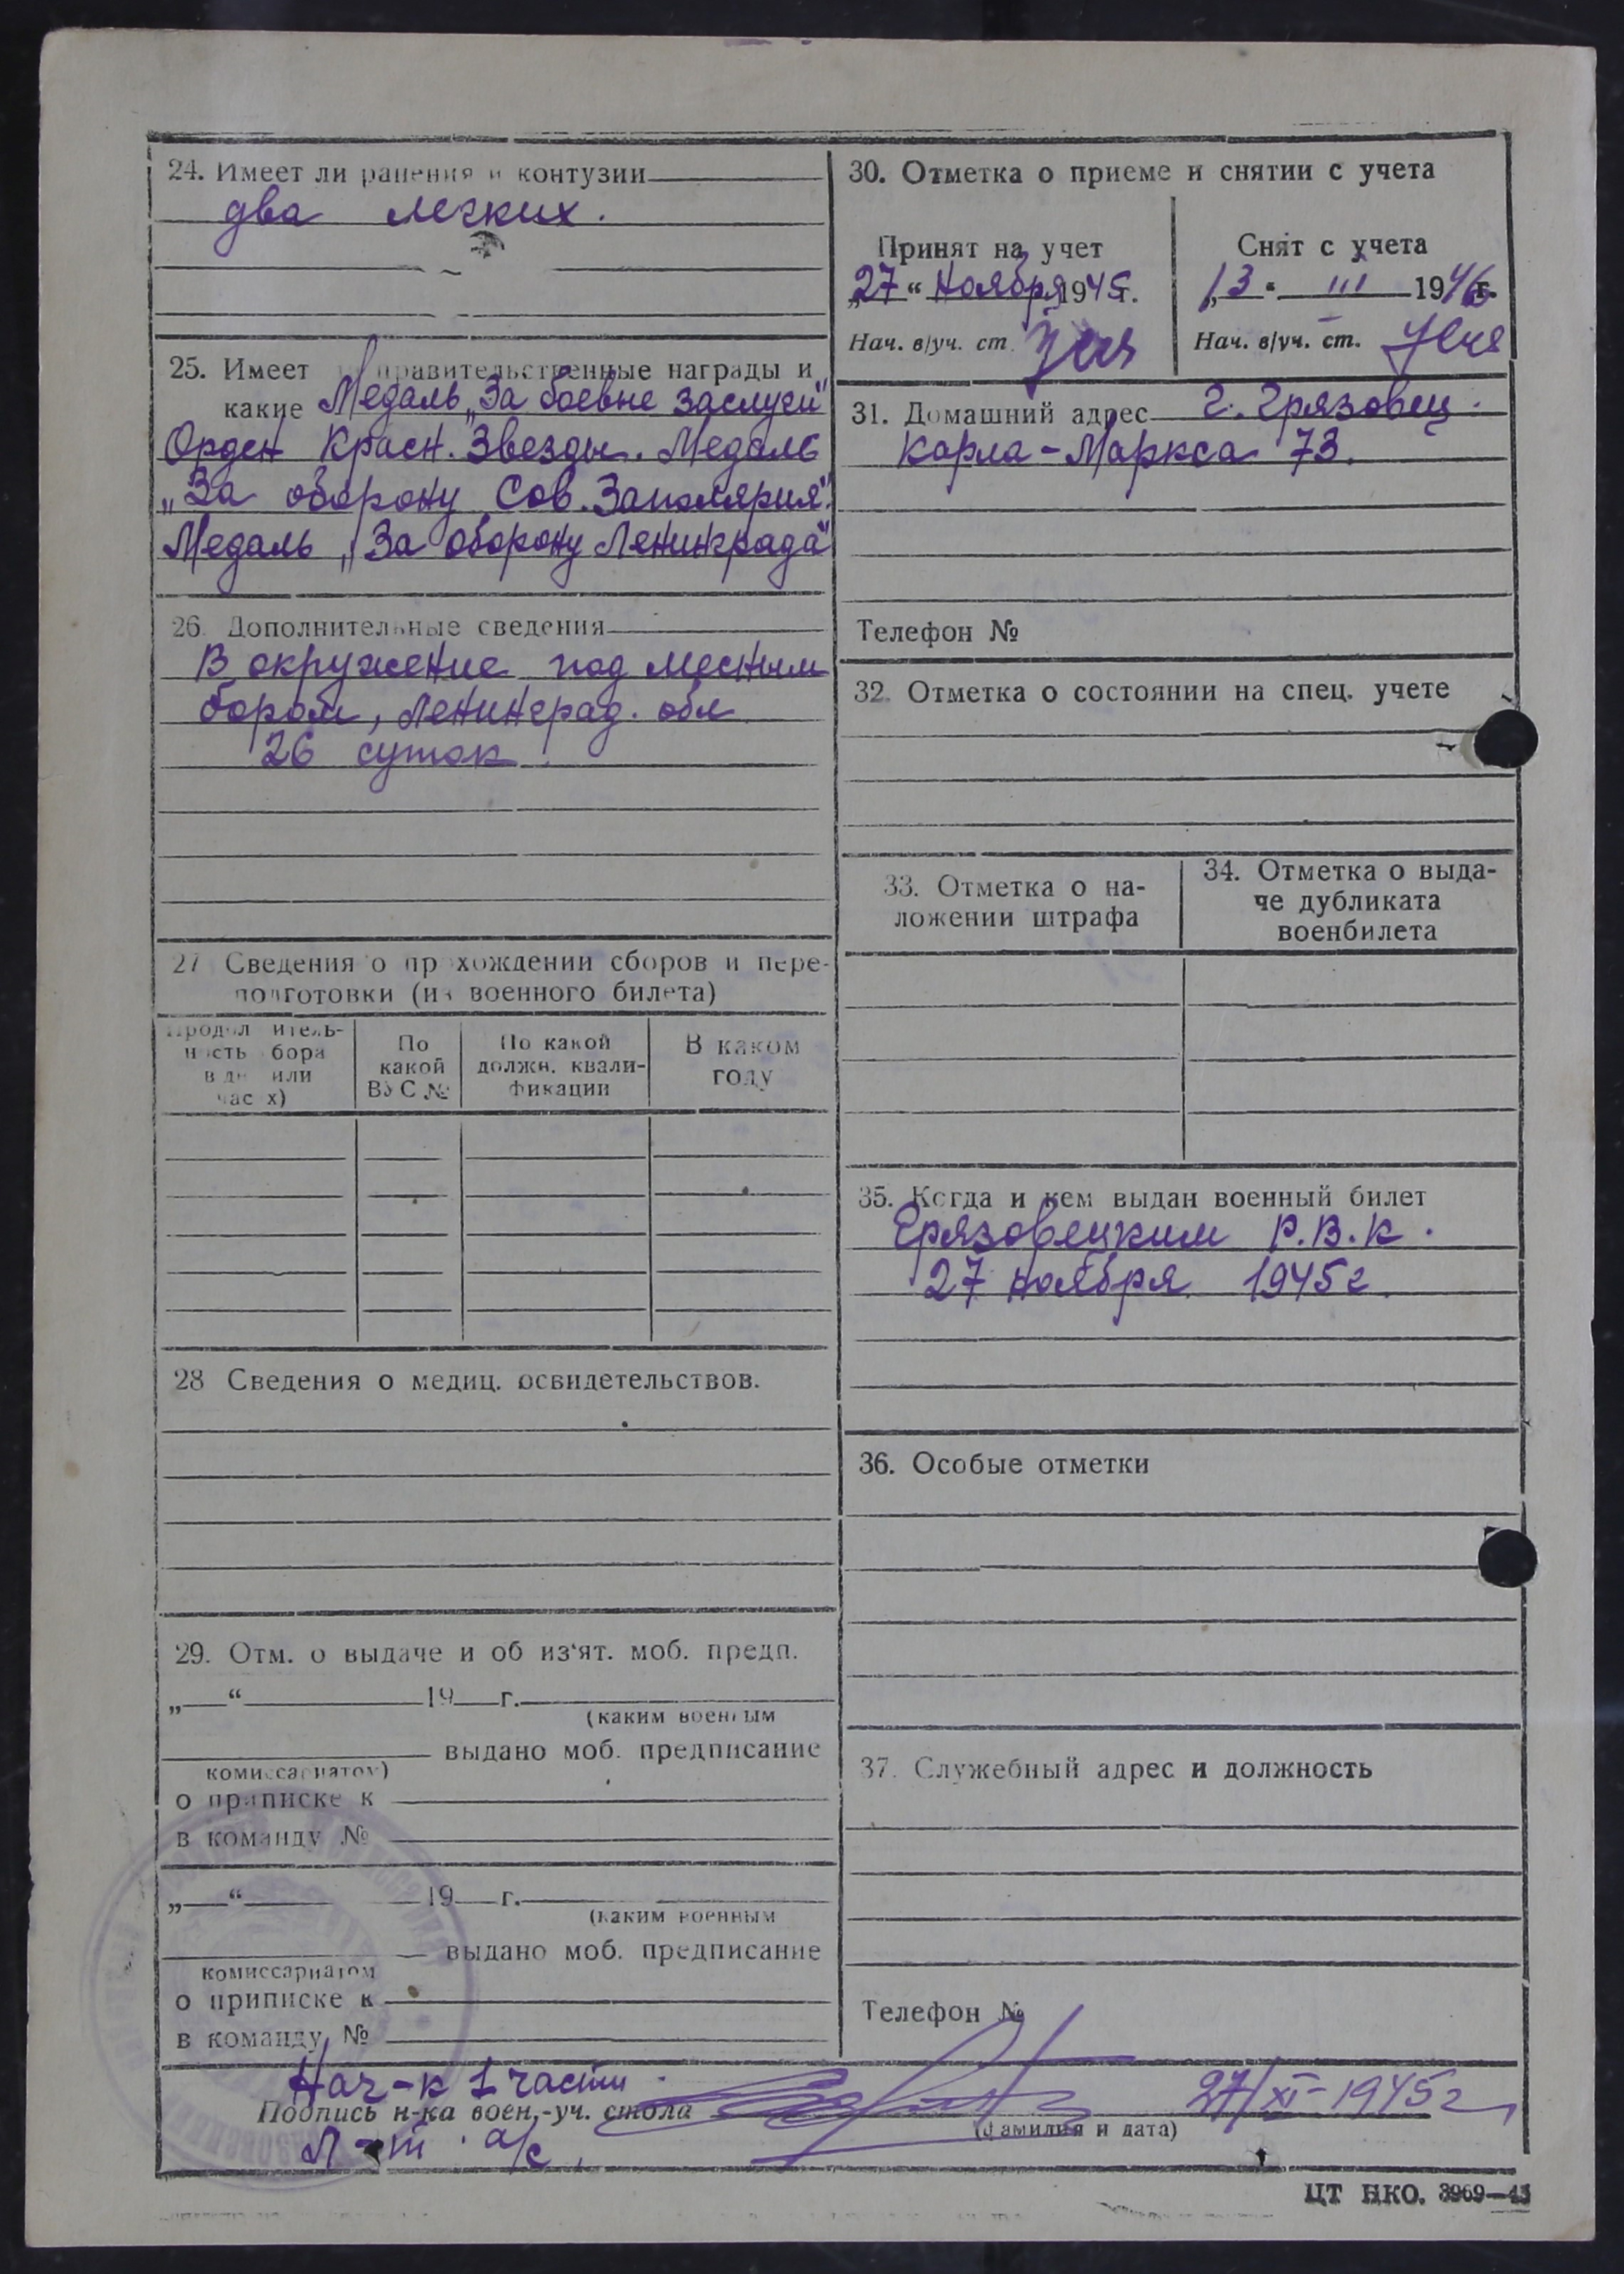 24. Имеет ли ранения и контузии
два легких.
25. Имеет правительственные награды и
какие Медаль „За боевые заслуги"
Орден Красн. Звезды. Медаль
„За оборону Сов. Заполярия".
Медаль „За оборону Ленинграда"
26. Дополнительные сведения
В окружение под месным
бором, Ленинград. обл
26 суток
27 Сведения о прохождении сборов и пере-
подготовки (из военного билета)
Продолжитель-
ность сбора
в дн или
часах)
По
какой
ВУС №
По какой
должн. квали-
фикации
В каком
году
28 Сведения о медиц. освидетельствов.
29. Отм. о выдаче и об из'ят. моб. предп.
„ “ 19 г.
(каким военным
выдано моб. предписание
комиссариатом)
о приписке к
в команду №
„ “ 19 г.
(каким военным
выдано моб. предписание
комиссариатом
о приписке к
в команду №
30. Отметка о приеме и снятии с учета
Принят на учет
„27“ Ноября 1945г.
Нач. в/уч. ст.
Снят с учета
„13“ III 1946г.
Нач. в/уч. ст.
31. Домашний адрес г. Грязовец.
Карла-Маркса 73.
Телефон №
32. Отметка о состоянии на спец. учете
33. Отметка о на-
ложении штрафа
34. Отметка о выда-
че дубликата
военбилета
35. Когда и кем выдан военный билет
Грязовецким Р.В.К.
27 ноября 1945г.
36. Особые отметки
37. Служебный адрес и должность
Телефон №
Нач-к 1 части
Подпись н-ка воен.-уч. стола
27/XI-1945г
(фамилия и дата)
Л-т а/с
ЦТ НКО. 3969—45